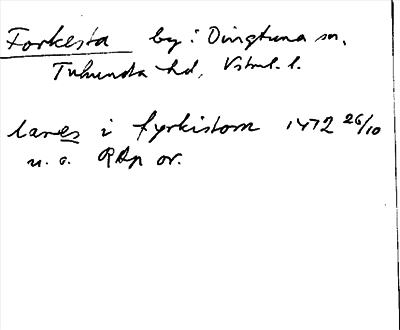 Forkesta by: Dingtuna sn,
Tuhundra hd, Vstml. l.
lares i fyrkistom 1472 26/10
u. o. RAp or.